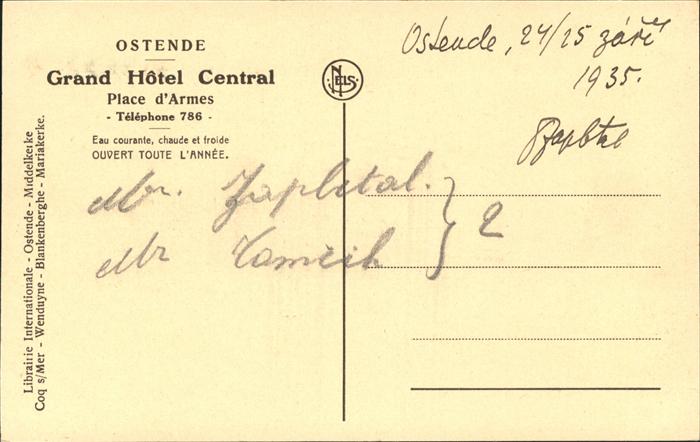 OSTENDE
Grand Hôtel Central
Place d'Armes
- Téléphone 786 -
Eau courante, chaude et froide
OUVERT TOUTE L'ANNÉE.
NELS
Ostende, 24/25 září
1935.
Mr. Zapletal.
Mr
2
Librairie Internationale - Ostende - Middelkerke
Coq s/Mer - Wenduyne - Blankenberghe - Mariakerke.